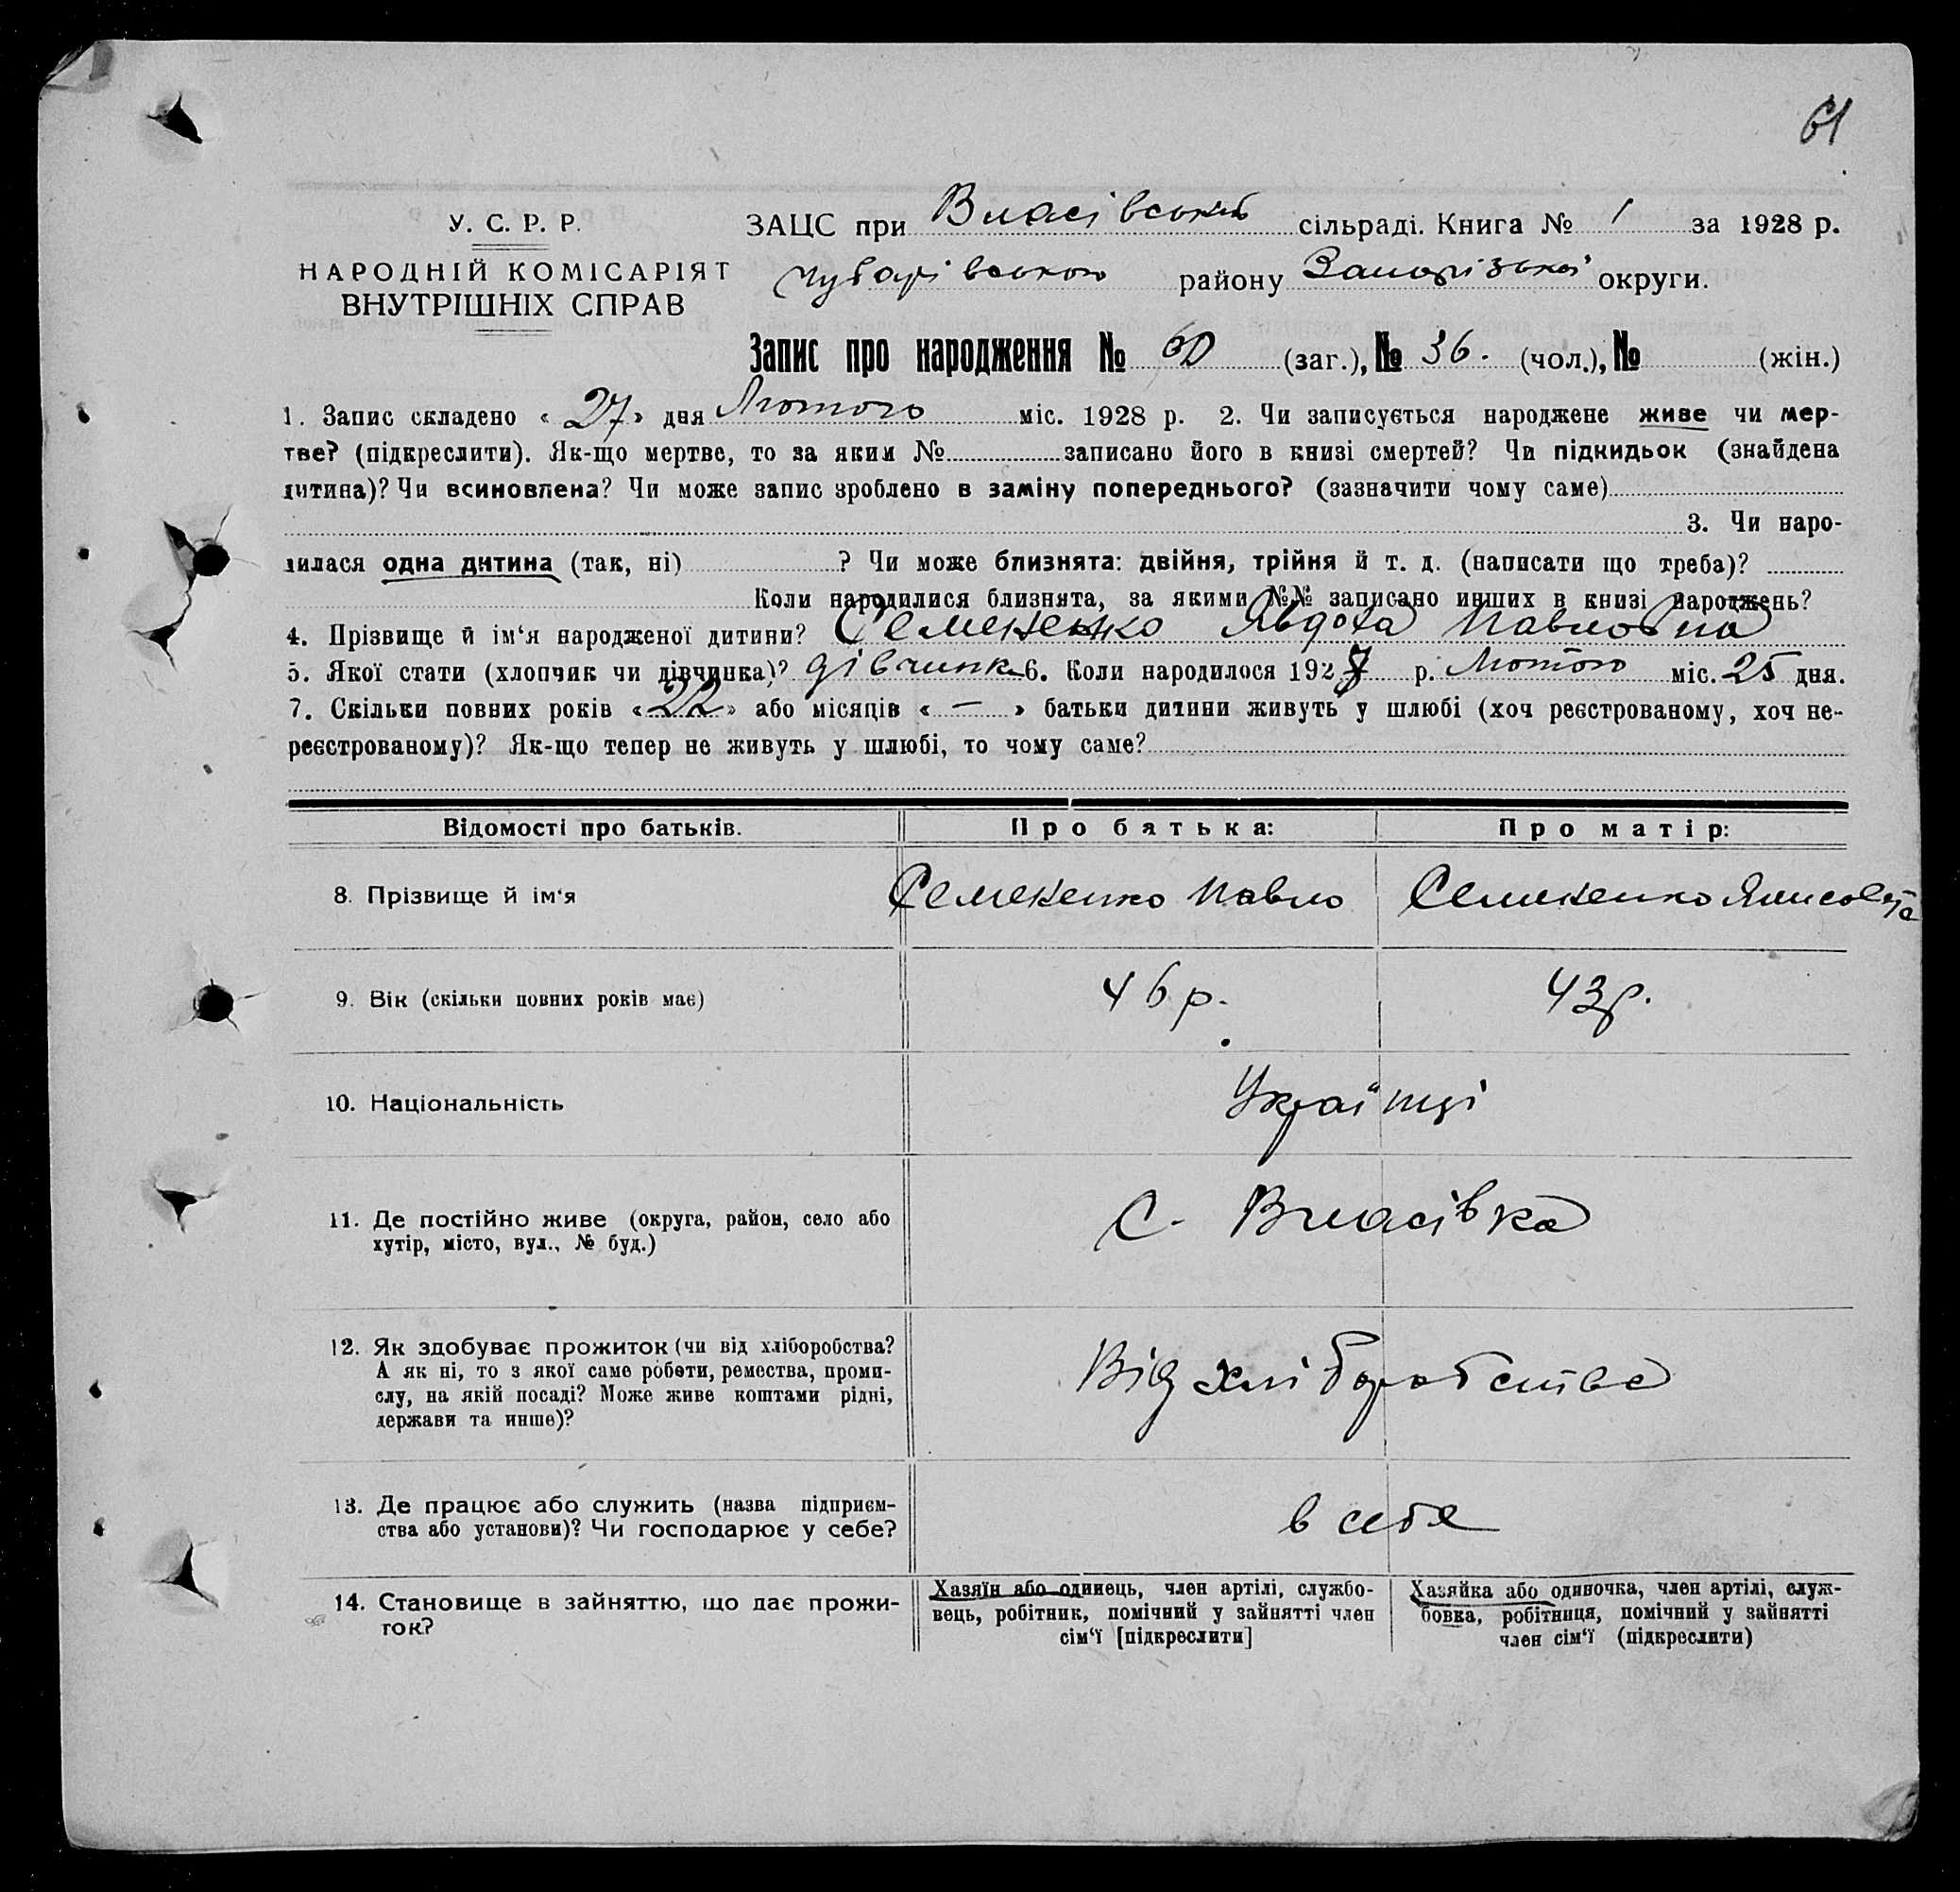 61
У. С. Р. Р.
НАРОДНІЙ КОМІСАРІЯТ
ВНУТРІШНІХ СПРАВ
ЗАЦС при Власівській сільраді. Книга № 1 за 1928 р.
Чубарівського району Запорізької округи.
Запис про народження № 60 (заг.), № 36. (чол.), № (жін.)
1. Запис складено « 27 » дня Лютого міс. 1928 р. 2. Чи записується народжене живе чи мер-
тве? (підкреслити). Як-що мертве, то за яким № записано його в книзі смертей? Чи підкидьок (знайдена
дитина)? Чи всиновлена? Чи може запис зроблено в заміну попереднього? (зазначити чому саме)
3. Чи наро-
дилася одна дитина (так, ні) ? Чи може близнята: двійня, трійня й т. д. (написати що треба)?
Коли народилися близнята, за якими №№ записано инших в книзі народжень?
4. Прізвище й ім‘я народженої дитини? Семененко Явдота Павловна
5. Якої стати (хлопчик чи дівчинка)? дівчинк 6. Коли народилося 192 р. Лютого міс. 25 дня.
7. Скільки повних років « 22 » або місяців « — » батьки дитини живуть у шлюбі (хоч реєстрованому, хоч не-
реєстрованому)? Як-що тепер не живуть у шлюбі, то чому саме?
Відомості про батьків. Про батька: Про матір:
8. Прізвище й ім‘я Семененко Павло Семененко Ялисовета
9. Вік (скільки повних років має) 46 р. 43 р.
10. Національність Українці
11. Де постійно живе (округа, район, село або
хутір, місто, вул., № буд.) С. Власівка
12. Як здобуває прожиток (чи від хліборобства?
А як ні, то з якої саме роботи, ремества, проми-
слу, на якій посаді? Може живе коштами рідні,
держави та инше)? Від хліборобства
13. Де працює або служить (назва підприєм-
ства або установи)? Чи господарює у себе? в себе
14. Становище в зайняттю, що дає прожи-
ток?
Хазяїн або одинець, член артілі, службо-
вець, робітник, помічний у зайнятті член
сім‘ї [підкреслити]
Хазяйка або одиночка, член артілі, служ-
бовка, робітниця, помічний у зайнятті
член сім‘ї (підкреслити)